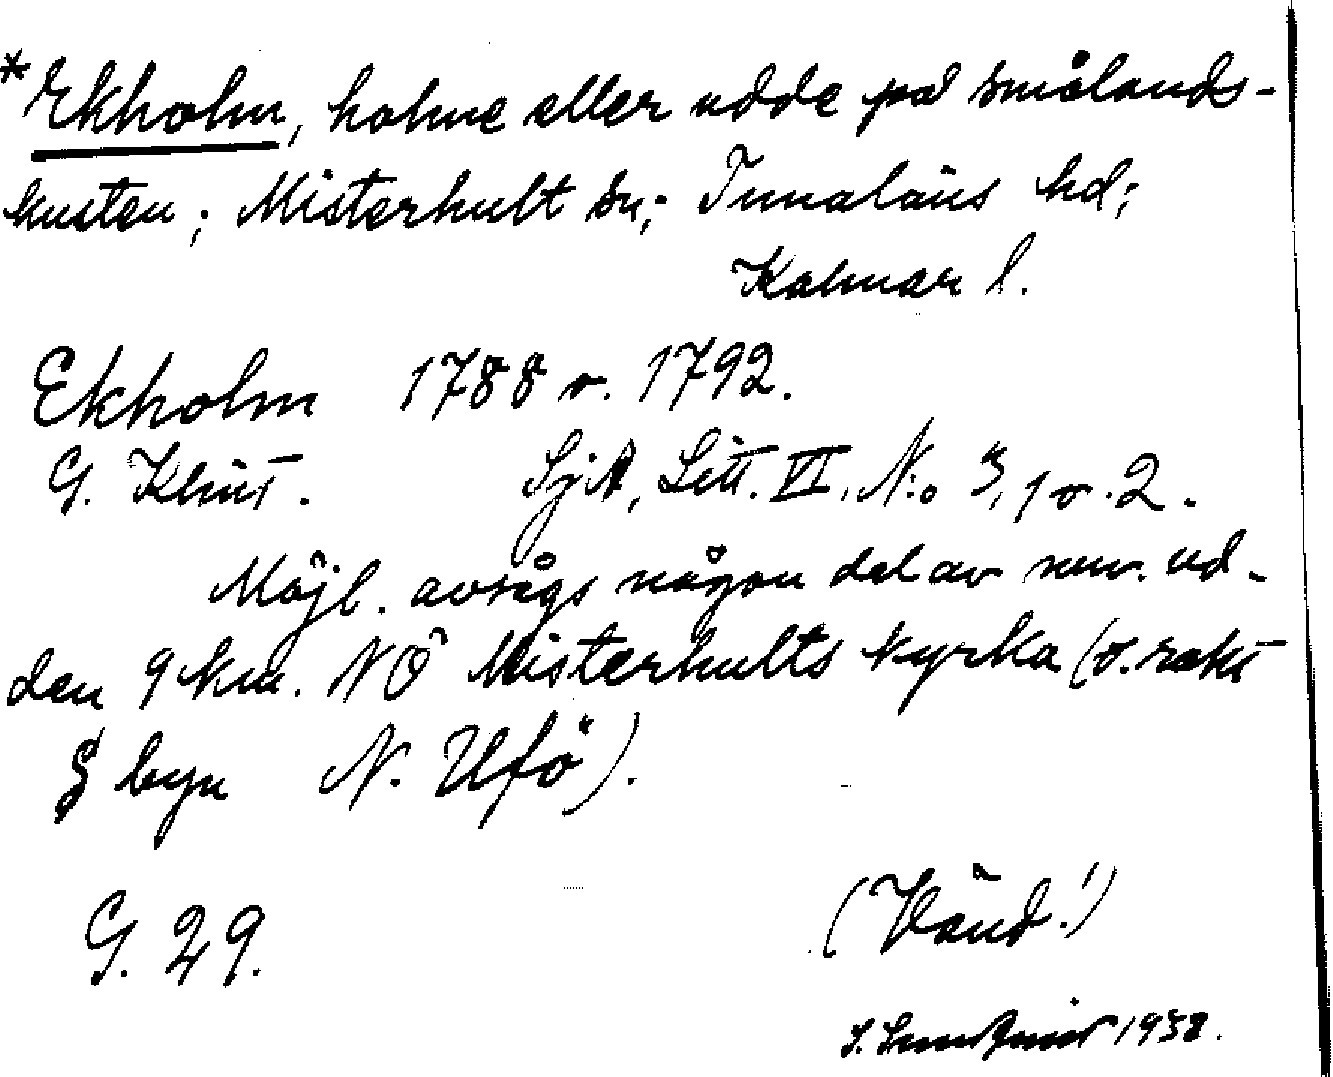 *Ekholm, holme eller udde på smålands-
kusten; Misterhult sn; Tunaläns hd;
Kalmar l.
Ekholm 1788 o. 1792.
G. Klint. SjA, Litt. VI, N:o 3, 1 o. 2.
Möjl. avsågs någon del av nuv. ud-
den 9 km. NÖ Misterhults kyrka (o. rakt
Ö byn N. Ufö).
G. 29.
(Vänd!)
1938.